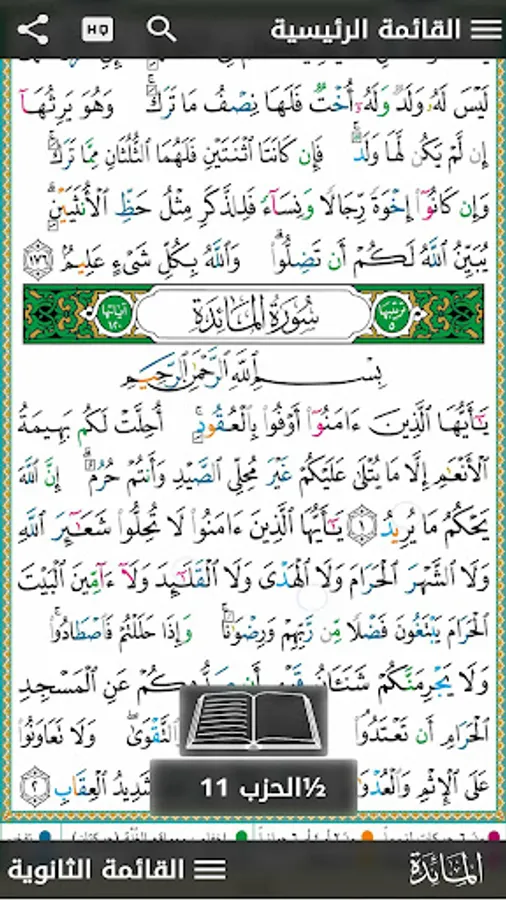 القائمة الرئيسية
HQ
لَيْسَ لَهُۥ وَلَدٌ وَلَهُۥٓ أُخْتٌ فَلَهَا نِصْفُ مَا تَرَكَ ۚ وَهُوَ يَرِثُهَآ
إِن لَّمْ يَكُن لَّهَا وَلَدٌ ۚ فَإِن كَانَتَا ٱثْنَتَيْنِ فَلَهُمَا ٱلثُّلُثَانِ مِمَّا تَرَكَ ۚ
وَإِن كَانُوٓا۟ إِخْوَةً رِّجَالًا وَنِسَآءً فَلِلذَّكَرِ مِثْلُ حَظِّ ٱلْأُنثَيَيْنِ ۗ
يُبَيِّنُ ٱللَّهُ لَكُمْ أَن تَضِلُّوا۟ ۗ وَٱللَّهُ بِكُلِّ شَىْءٍ عَلِيمٌۢ ١٧٦
ترتيبها ٥ سُورَةُ المَائِدَةِ آياتها ١٢٠
بِسْمِ ٱللَّهِ ٱلرَّحْمَٰنِ ٱلرَّحِيمِ
يَٰٓأَيُّهَا ٱلَّذِينَ ءَامَنُوٓا۟ أَوْفُوا۟ بِٱلْعُقُودِ ۚ أُحِلَّتْ لَكُم بَهِيمَةُ
ٱلْأَنْعَٰمِ إِلَّا مَا يُتْلَىٰ عَلَيْكُمْ غَيْرَ مُحِلِّى ٱلصَّيْدِ وَأَنتُمْ حُرُمٌ ۗ إِنَّ ٱللَّهَ
يَحْكُمُ مَا يُرِيدُ ١ يَٰٓأَيُّهَا ٱلَّذِينَ ءَامَنُوا۟ لَا تُحِلُّوا۟ شَعَٰٓئِرَ ٱللَّهِ
وَلَا ٱلشَّهْرَ ٱلْحَرَامَ وَلَا ٱلْهَدْىَ وَلَا ٱلْقَلَٰٓئِدَ وَلَآ ءَآمِّينَ ٱلْبَيْتَ
ٱلْحَرَامَ يَبْتَغُونَ فَضْلًا مِّن رَّبِّهِمْ وَرِضْوَٰنًا ۚ وَإِذَا حَلَلْتُمْ فَٱصْطَادُوا۟ ۚ
وَلَا يَجْرِمَنَّكُمْ شَنَـَٔانُ قَوْمٍ أَن صَدُّوكُمْ عَنِ ٱلْمَسْجِدِ
ٱلْحَرَامِ أَن تَعْتَدُوا۟ ٱلتَّقْوَىٰ ۖ وَلَا تَعَاوَنُوا۟
عَلَى ٱلْإِثْمِ وَٱلْعُدْوَ شَدِيدُ ٱلْعِقَابِ ٢
½الحزب 11
المَائِدَة
القائمة الثانوية